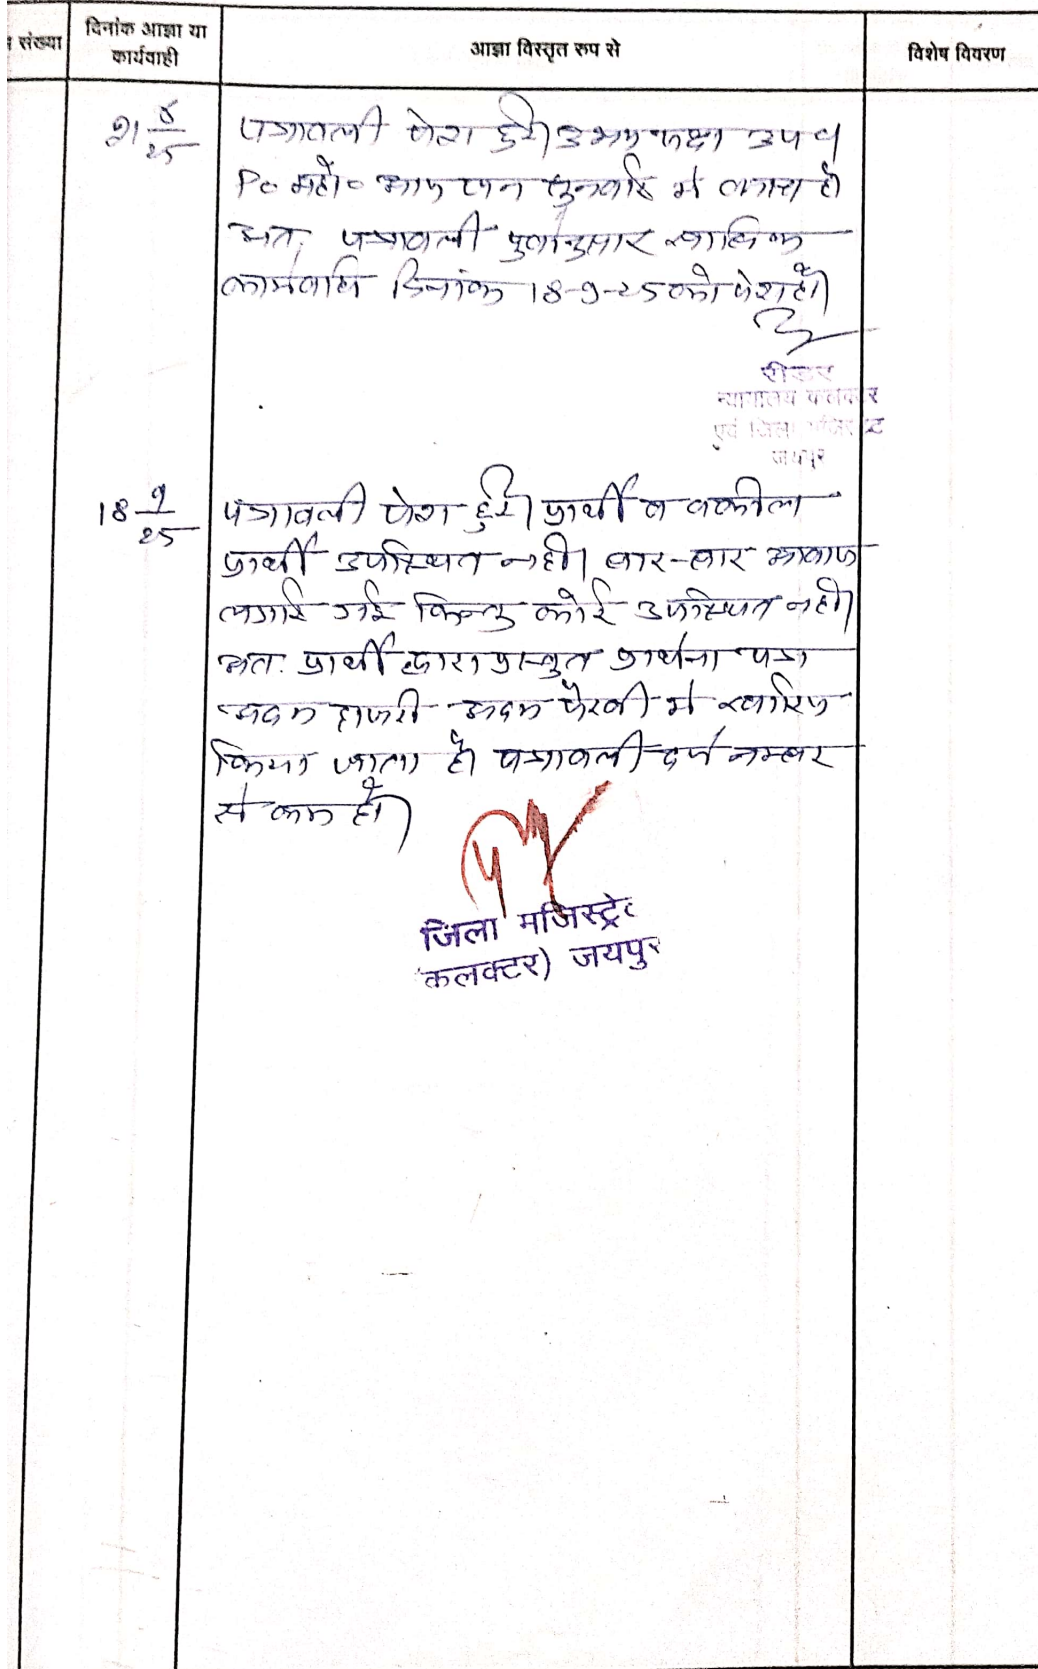 संख्या
दिनांक आज्ञा या
कार्यवाही
आज्ञा विस्तृत रुप से
विशेष विवरण
21 8/25
पत्रावली पेश हुई। उभयपक्ष उप व
Po महो० आज जन सुनवाई में व्यस्त है
अतः पत्रावली पुर्वानुसार
कार्यवाही दिनांक 18-9-25 को पेश हो।
रीडर
न्यायालय कलक्टर
एवं जिला मजिस्ट्रेट
जयपुर
18 9/25
पत्रावली पेश हुई। प्रार्थी व वकील
प्रार्थी उपस्थित नही। बार-बार आवाज
लगाई गई किन्तु कोई उपस्थित नही।
अतः प्रार्थी द्वारा प्रस्तुत प्रार्थना पत्र
अदम हाजरी अदम पैरवी में खारिज
किया जाता है। पत्रावली दर्ज नम्बर
से कम हो।
जिला मजिस्ट्रेट
(कलक्टर) जयपुर